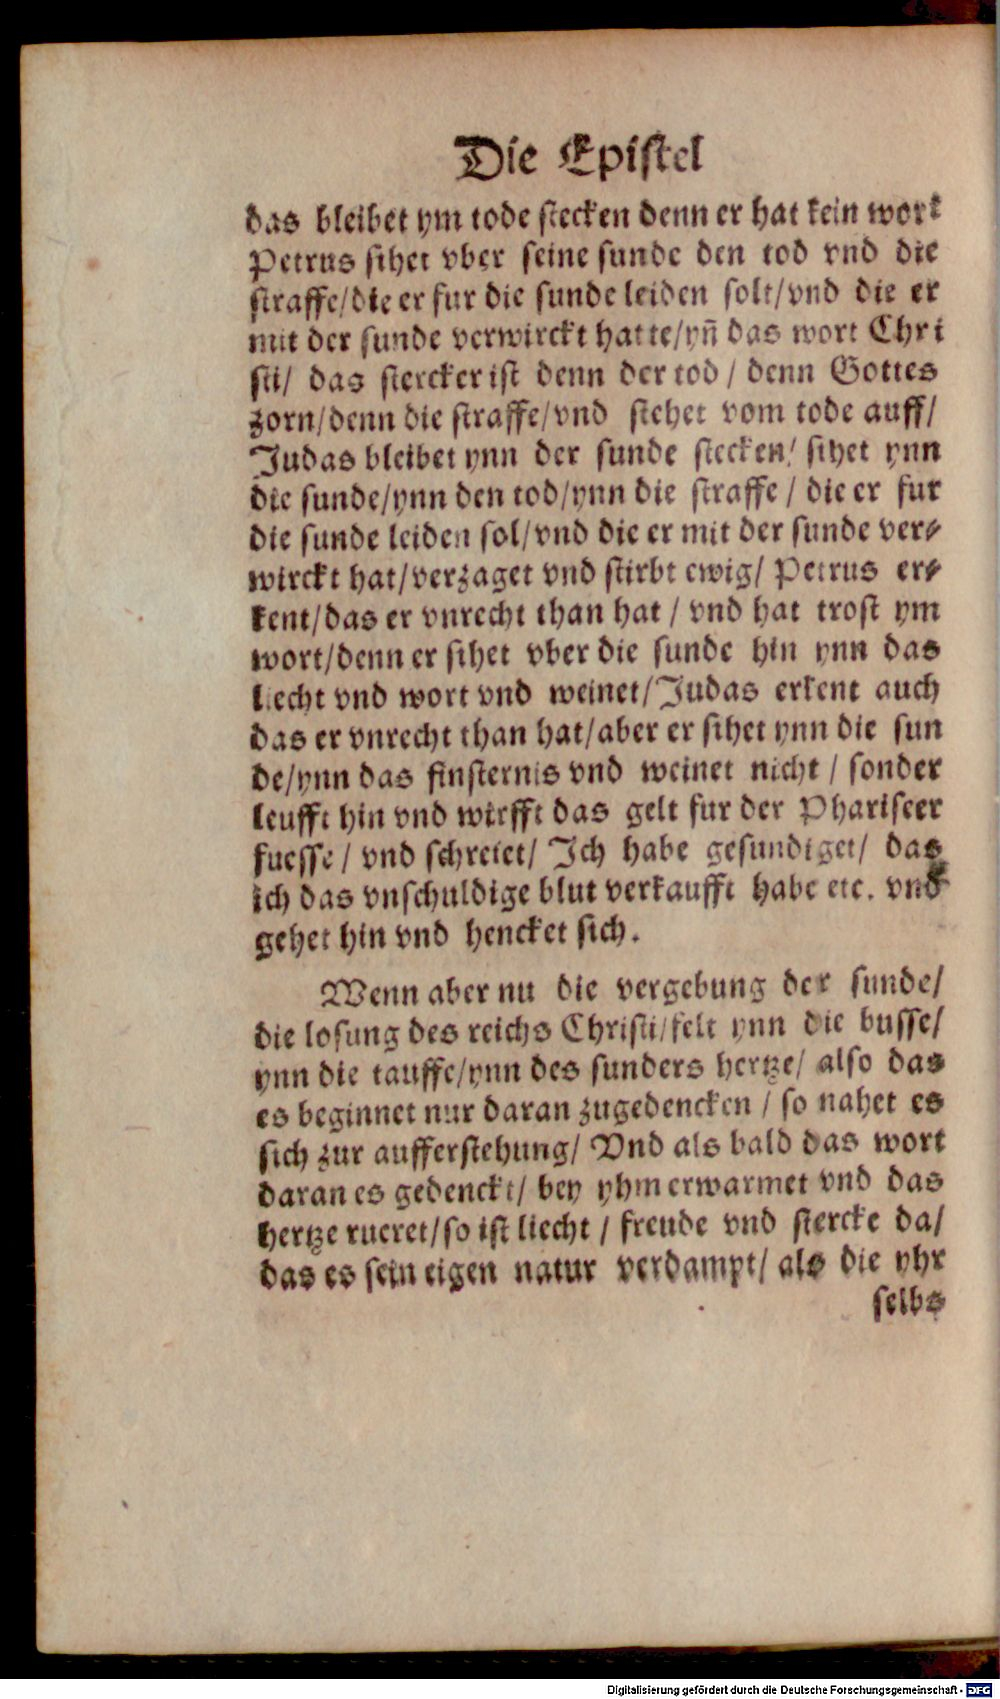 Die Epistel
das bleibet ym tode stecken denn er hat kein wort
Petrus sihet vber seine sunde den tod vnd die
straffe/die er fur die sunde leiden solt/vnd die er
mit der sunde verwirckt hatte/yñ das wort Chri
sti/ das stercker ist denn der tod / denn Gottes
zorn/denn die straffe/vnd stehet vom tode auff/
Judas bleibet ynn der sunde stecken/ sihet ynn
die sunde/ynn den tod/ynn die straffe / die er fur
die sunde leiden sol/vnd die er mit der sunde ver⸗
wirckt hat/verzaget vnd stirbt ewig/ Petrus er⸗
kent/das er vnrecht than hat / vnd hat trost ym
wort/denn er sihet vber die sunde hin ynn das
liecht vnd wort vnd weinet/Judas erkent auch
das er vnrecht than hat/aber er sihet ynn die sun
de/ynn das finsternis vnd weinet nicht / sonder
leufft hin vnd wirfft das gelt fur der Phariseer
fuesse / vnd schreiet/ Ich habe gesundiget/ das
ich das vnschuldige blut verkaufft habe etc. vnd
gehet hin vnd hencket sich.
Wenn aber nu die vergebung der sunde/
die losung des reichs Christi/felt ynn die busse/
ynn die tauffe/ynn des sunders hertze/ also das
es beginnet nur daran zugedencken / so nahet es
sich zur aufferstehung/ Vnd als bald das wort
daran es gedenckt/ bey yhm erwarmet vnd das
hertze rueret/so ist liecht / freude vnd stercke da/
das es sein eigen natur verdampt/ als die yhr
selbs
Digitalisierung gefördert durch die Deutsche Forschungsgemeinschaft - DFG